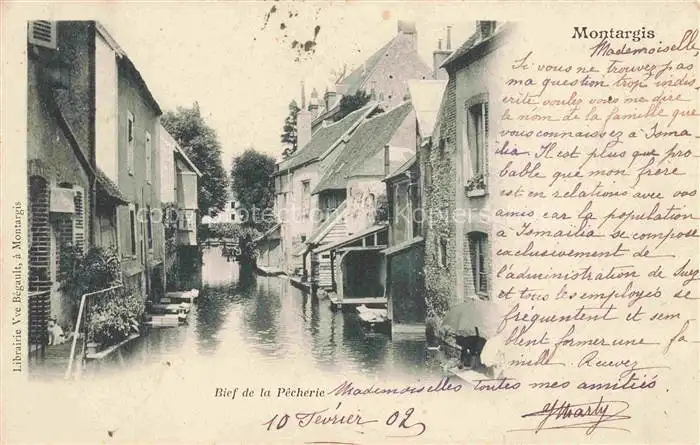 Montargis
Mademoiselle,
Si vous ne trouvez pas
ma question trop indis
crète voulez vous me dire
le nom de la famille que
vous connaissez à Isma
ïlia. Il est plus que pro
bable que mon frère
est en relations avec vos
amis, car la population
d'Ismaïlia se compose
exclusivement de
l'administration de Suez
et tous les employés se
fréquentent et sem
blent former une fa
mille. Recevez
Mademoiselle toutes mes amitiés
Bief de la Pêcherie
10 Février 02
YMarty
Librairie Vve Bégault, à Montargis